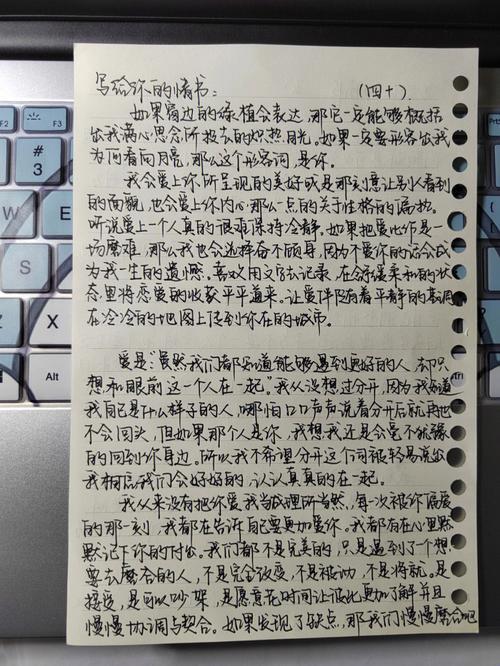 写给你的情书： （四十）
如果窗边的绿植会表达，那它一定能够概括
出我满心思念所投去的炽热目光。如果一定要形容出我
为何看向月亮，那么这个形容词，是你。
我会爱上你所呈现的美好或是那刻意让别人看到
的面貌，也会爱上你内心那么一点的关于性格的偏执。
听说爱上一个人真的很难保持冷静，如果把爱比作是一
场磨难，那么我也会选择奋不顾身，因为不爱你的话会成
为我一生的遗憾。喜欢用文字去记录，在舒缓柔和的状
态里将恋爱的收获平平道来。让爱伴随着平静的基调
在冷冷的地图上传到你在的城市。
爱是：“虽然我们都知道能够遇到更好的人，却只
想和眼前这一个人在一起。”我从没想过分开，因为我知道
我自己是什么样子的人，哪怕口口声声说着分开后就再也
不会回头，但如果那个人是你，我想我还是会毫不犹豫
的回到你身边。所以我不希望分开这个词被轻易说出
我相信我们会好好的，认认真真的在一起。
我从来没有把你爱我当成理所当然，每一次被你偏爱
的那一刻，我都在告诉自己要更加爱你。我都有在心里默
默记下你的付出。我们都不是完美的，只是遇到了个想
要去磨合的人，不是完全改变，不是被动，不是将就。是
接受，是可以吵架，是愿意花时间让彼此更加了解并且
慢慢协调与契合。如果发现了缺点，那我们慢慢磨合吧
F2
F3
#
3
Alt
Ctrl